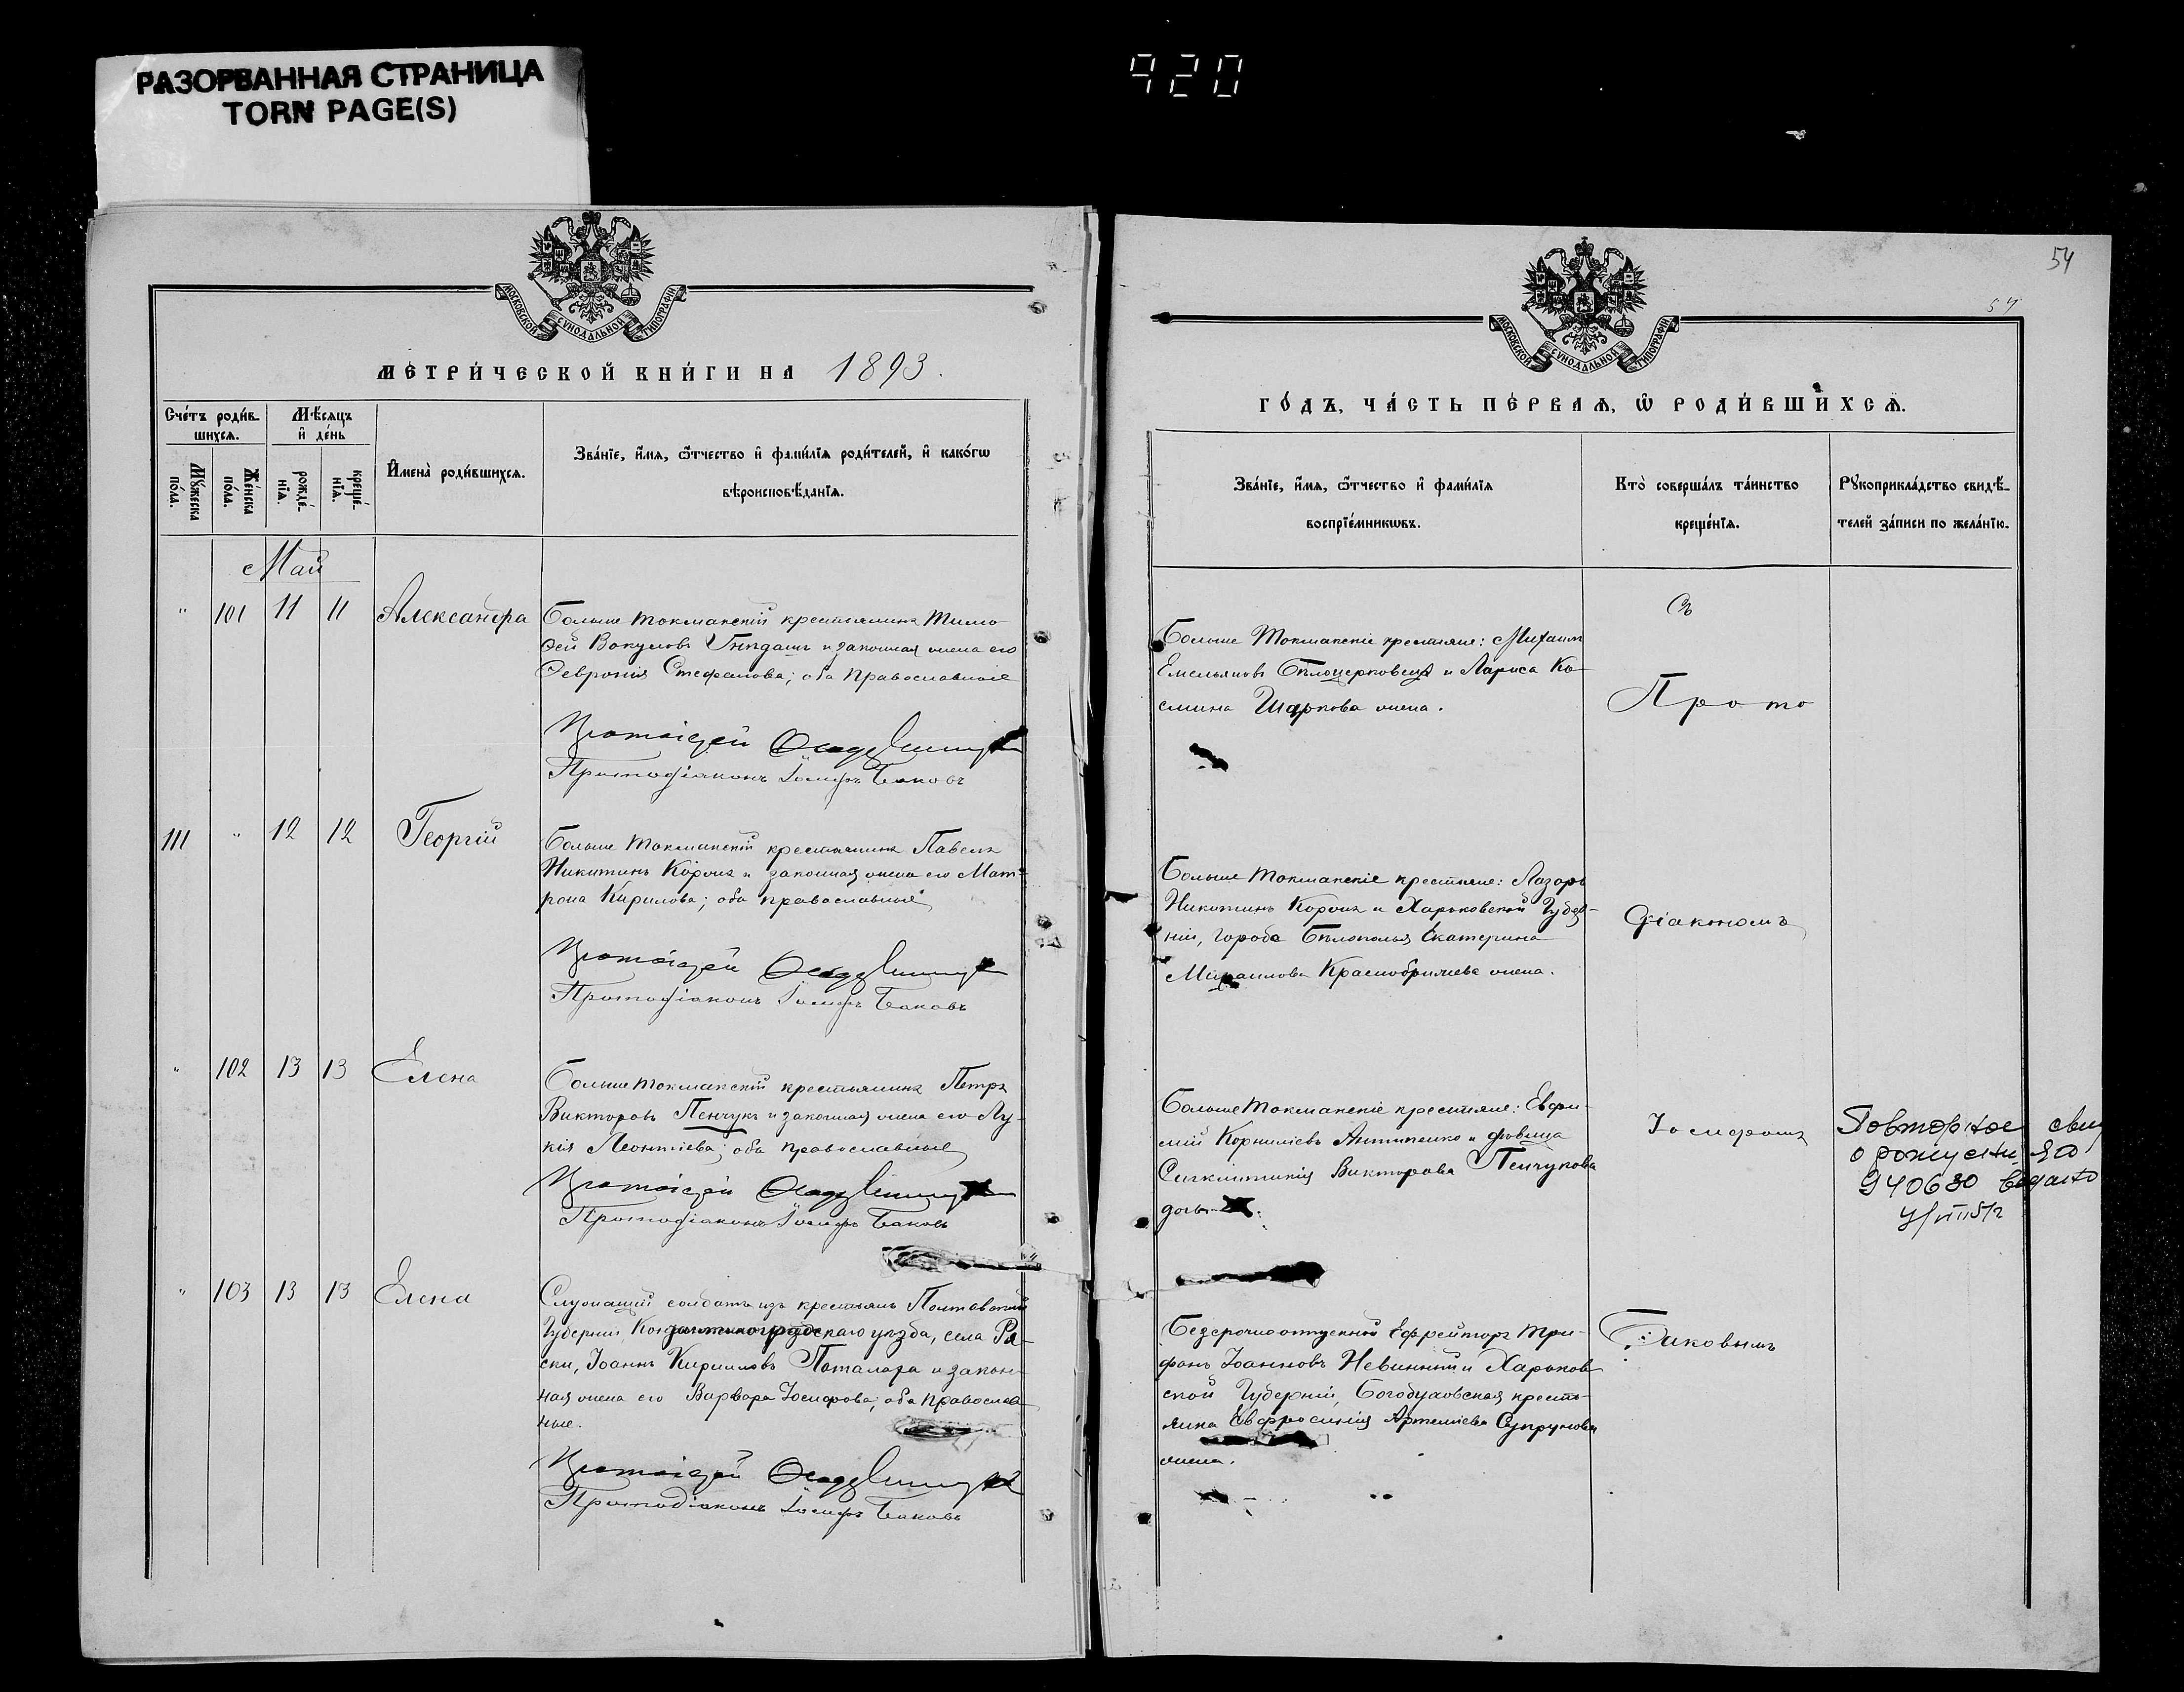 РАЗОРВАННАЯ СТРАНИЦА
TORN PAGE(S)
920
МОСКОВСКОЙ СѴНОДАЛЬНОЙ ТИПОГРАФІИ
МЕТРИ́ЧЕСКОЙ КНИ́ГИ НА 1893.
Сче́тъ роди́в-
шихсѧ.
Мѣ́сяцъ
и҆ де́нь
Мꙋ́жеска
по́ла.
Же́нска
по́ла.
рожде́-
нїѧ.
креще́-
нїѧ.
И҆мена̀ роди́вшихсѧ.
Зва́нїе, и҆́мѧ, ѻ҆́тчество и҆ фами́лїѧ роди́телей, и҆ како́гѡ
вѣроисповѣ́данїѧ.
Май
" 101 11 11 Александра
Больше Токмакскій крестьянинъ Тимо-
ѳей Вакуловъ и законная жена его
Ѳевронія Стефанова; оба Православные
Протодіаконъ Іосифъ Баковъ
111 " 12 12 Георгій
Больше Токмакскій крестьянинъ Павелъ
Никитинъ и законная жена его Мат-
рона Кирилова; оба православные
Протодіаконъ Іосифъ Баковъ
" 102 13 13 Елена
Больше Токмакскій крестьянинъ Петръ
Викторовъ Пенчукъ и законная жена его Лу-
кія Леонтіева; оба православные
Протодіаконъ Іосифъ Баковъ
" 103 13 13 Елена
Служащій солдатъ изъ крестьянъ Полтавской
Губерніи, Константиноградскаго уѣзда, села Ря-
ски, Іоаннъ Кирилловъ и закон-
ная жена его Варвара Іосифова; оба православ-
ные.
Протодіаконъ Іосифъ Баковъ
54
54
МОСКОВСКОЙ СѴНОДАЛЬНОЙ ТИПОГРАФІИ
ГО́ДЪ, ЧА́СТЬ ПЕ́РВАЯ, Ѡ҆ РОДИ́ВШИХСЯ.
Зва́нїе, и҆́мѧ, ѻ҆́тчество и҆ фами́лїѧ
воспрїе́мникѡвъ.
Кто̀ соверша́лъ та́инство
креще́нїѧ.
Рꙋкоприкла́дство свидѣ́-
телей за́писи по жела́нїю.
Больше Токмакскіе крестьяне: Михаилъ
Емельяновъ и Лариса Ко-
смина жена.
Съ
Прото
Больше Токмакскіе крестьяне: Лазарь
Никитинъ и Харьковской Губер-
ніи, города Бѣлополья Екатерина
Михаилова жена.
діакономъ
Больше Токмакскіе крестьяне: Евфи-
мій Корниліевъ Антипенко и дѣвица
Синклитикія Викторова Пенчукова
дочь.
Іосифомъ
Повторное свид
о рождении ЯО
940630 выдано
Безсрочноотпускной Ефрейторъ Три-
фонъ Іоанновъ Невинный и Харьков-
ской Губерніи, Богодуховская кресть-
янка Евфросинія Артеміева Супрунова
жена.
Баковымъ